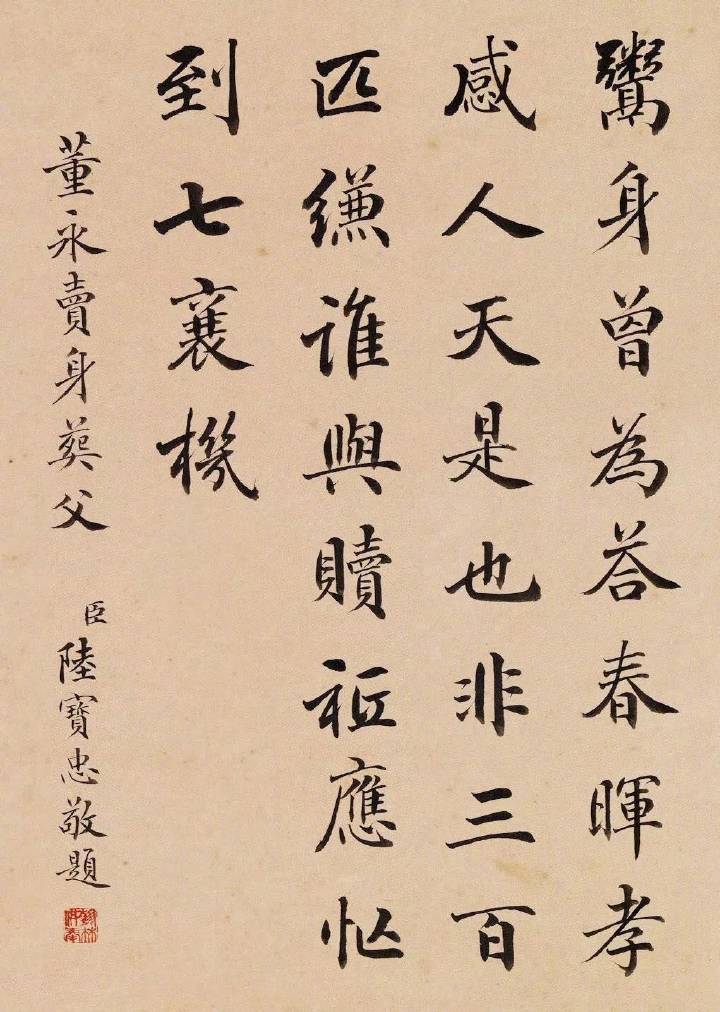 鬻身曾為荅春暉孝
感人天是也非三百
匹縑誰與贖祗應忙
到七襄機
董永賣身葬父 臣陸寶忠敬題